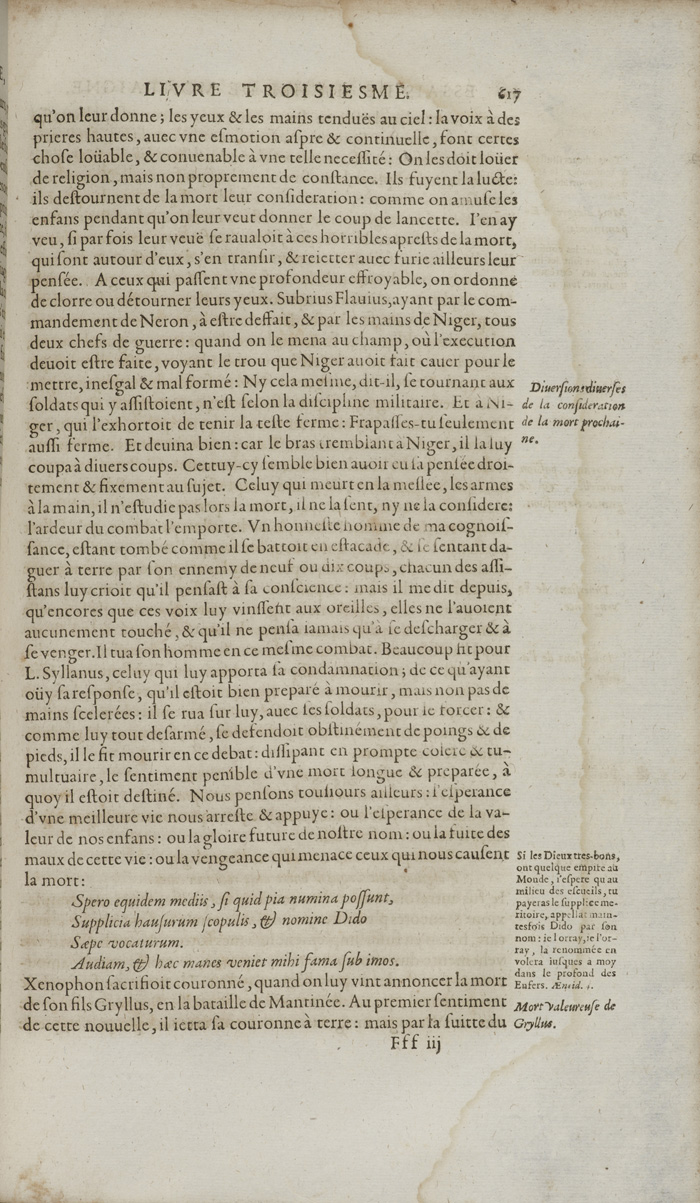 LIVRE TROISIESME. 617
qu'on leur donne; les yeux & les mains tenduës au ciel: la voix à des
prieres hautes, auec vne eſmotion aſpre & continuelle, font certes
choſe loüable, & conuenable à vne telle neceſſité: On les doit loüer
de religion, mais non proprement de conſtance. Ils fuyent la lucte:
ils deſtournent de la mort leur conſideration: comme on amuſe les
enfans pendant qu'on leur veut donner le coup de lancette. I'en ay
veu, ſi par fois leur veuë ſe raualoit à ces horribles apreſts de la mort,
qui ſont autour d'eux, s'en tranſir, & reietter auec furie ailleurs leur
penſée. A ceux qui paſſent vne profondeur effroyable, on ordonne
de clorre ou détourner leurs yeux. Subrius Flauius, ayant par le com-
mandement de Neron, à eſtre deffait, & par les mains de Niger, tous
deux chefs de guerre: quand on le mena au champ, où l'execution
deuoit eſtre faite, voyant le trou que Niger auoit fait cauer pour le
mettre, ineſgal & mal formé: Ny cela meſme, dit-il, ſe tournant aux
ſoldats qui y aſſiſtoient, n'eſt ſelon la diſcipline militaire. Et à Ni-
ger, qui l'exhortoit de tenir la teſte ferme: Frapaſſes-tu ſeulement
auſſi ferme. Et deuina bien: car le bras tremblant à Niger, il la luy
coupa à diuers coups. Cettuy-cy ſemble bien auoir eu ſa penſée droi-
tement & fixement au ſujet. Celuy qui meurt en la meſlée, les armes
à la main, il n'eſtudie pas lors la mort, il ne la ſent, ny ne la conſidere:
l'ardeur du combat l'emporte. Vn honneſte homme de ma cognoiſ-
ſance, eſtant tombé comme il ſe battoit en eſtacade, & ſe ſentant da-
guer à terre par ſon ennemy de neuf ou dix coups, chacun des aſſi-
ſtans luy crioit qu'il penſaſt à ſa conſcience: mais il me dit depuis,
qu'encores que ces voix luy vinſſent aux oreilles, elles ne l'auoient
aucunement touché, & qu'il ne penſa iamais qu'à ſe deſcharger & à
ſe venger. Il tua ſon homme en ce meſme combat. Beaucoup fit pour
L. Syllanus, celuy qui luy apporta ſa condamnation; de ce qu'ayant
oüy ſa reſponſe, qu'il eſtoit bien preparé à mourir, mais non pas de
mains ſcelerées: il ſe rua ſur luy, auec ſes ſoldats, pour le forcer: &
comme luy tout deſarmé, ſe defendoit obſtinément de poings & de
pieds, il le fit mourir en ce debat: diſſipant en prompte colere & tu-
multuaire, le ſentiment penible d'vne mort longue & preparée, à
quoy il eſtoit deſtiné. Nous penſons touſiours ailleurs: l'eſperance
d'vne meilleure vie nous arreſte & appuye: ou l'eſperance de la va-
leur de nos enfans: ou la gloire future de noſtre nom: ou la fuite des
maux de cette vie: ou la vengeance qui menace ceux qui nous cauſent
la mort:
Spero equidem mediis, ſi quid pia numina poſſunt,
Supplicia hauſurum ſcopulis, & nomine Dido
Sæpe vocaturum.
Audiam, & hæc manes veniet mihi fama ſub imos.
Xenophon ſacrifioit couronné, quand on luy vint annoncer la mort
de ſon fils Gryllus, en la bataille de Mantinée. Au premier ſentiment
de cette nouuelle, il ietta ſa couronne à terre: mais par la ſuitte du
Fff iij
Diuerſions diuerſes
de la conſideration
de la mort prochai-
ne.
Si les Dieux tres-bons,
ont quelque empire au
Monde, i'eſpere qu'au
milieu des eſcueils, tu
payeras le ſupplice me-
ritoire, appellât main-
tesfois Dido par ſon
nom: ie l'orray, ie l'or-
ray, la renommée en
volera iuſques à moy
dans le profond des
Enfers. Æneid. 4.
Mort valeureuſe de
Gryllus.